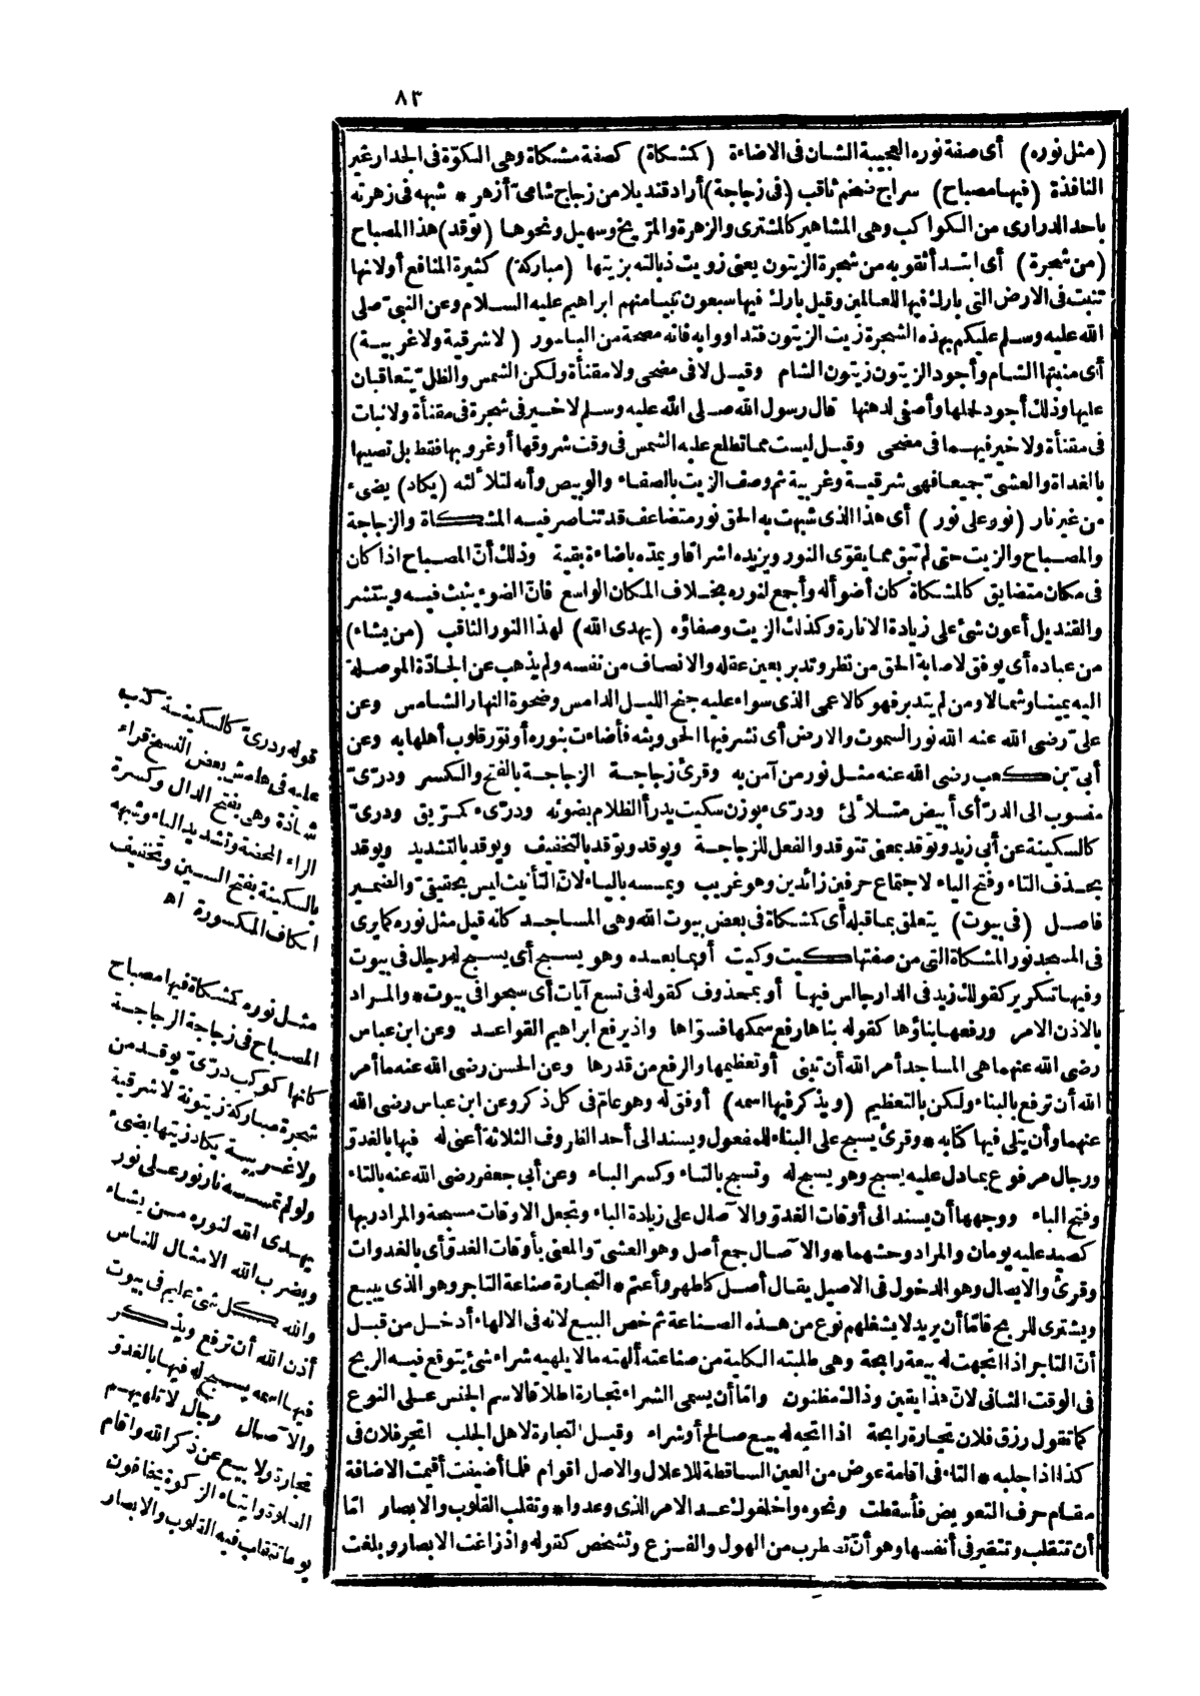 ٨٣
(مثل نوره) أى صفة نوره العجيبة الشان فى الاضاءة (كمشكاة) كصفة مشكاة وهى الكوّة فى الجدار غير
النافذة (فيها مصباح) سراج ضخم ثاقب (فى زجاجة) أراد قنديلا من زجاج شامىّ أزهر * شبهه فى زهرته
باحد الدرارى من الكواكب وهى المشاهير كالمشترى والزهرة والمرّيخ وسهيل ونحوها (توقد) هذا المصباح
(من شجرة) أى ابتدأ ثقوبه من شجرة الزيتون يعنى زويت ذبالته بزيتها (مباركة) كثيرة المنافع أو لانها
تنبت فى الارض التى بارك فيها للعالمين وقيل بارك فيها سبعون نبيا منهم ابراهيم عليه السلام وعن النبىّ صلى
الله عليه وسلم عليكم بهذه الشجرة زيت الزيتون فتداووا به فانه مصحة من الباسور (لا شرقية ولا غربية)
أى منبتها الشام وأجود الزيتون زيتون الشام وقيل لا فى مضحى ولا مقنأة ولكن الشمس والظل يتعاقبان
عليها وذلك أجود لحملها وأصفى لدهنها قال رسول الله صلى الله عليه وسلم لا خير فى شجرة فى مقنأة ولا نبات
فى مقنأة ولا خير فيهما فى مضحى وقيل ليست مما تطلع عليه الشمس فى وقت شروقها أو غروبها فقط بل تصيبها
بالغداة والعشىّ جميعا فهى شرقية وغربية ثم وصف الزيت بالصفاء والوبيص وأنه لتلألئه (يكاد) يضىء
من غير نار (نور على نور) أى هذا الذى شبهت به الحق نور متضاعف قد تناصر فيه المشكاة والزجاجة
والمصباح والزيت حتى لم تبق مما يقوّى النور ويزيده اشراقا ويمدّه باضاءة بقية وذلك أنّ المصباح اذا كان
فى مكان متضايق كالمشكاة كان أضوأ له وأجمع لنوره بخلاف المكان الواسع فانّ الضوء ينبث فيه وينتشر
والقنديل أعون شئ على زيادة الانارة وكذلك الزيت وصفاؤه (يهدى الله) لهذا النور الثاقب (من يشاء)
من عباده أى يوفق لاصابة الحق من نظر وتدبر بعين عقله والانصاف من نفسه ولم يذهب عن الجادّة الموصلة
اليه يمينا وشمالا ومن لم يتدبر فهو كالاعمى الذى سواء عليه جنح الليل الدامس وضحوة النهار الشامس وعن
علىّ رضى الله عنه الله نور السموت والارض أى نشر فيها الحق وبثه فأضاءت بنوره أو نوّر قلوب أهلها به وعن
أبىّ بن كعب رضى الله عنه مثل نور من آمن به وقرئ زجاجة الزجاجة بالفتح والكسر ودرّىّ
منسوب الى الدرّ أى أبيض متلألئ ودرّىء بوزن سكيت يدرأ الظلام بضوئه ودرىء كمرّيق ودرىّ
كالسكينة عن أبى زيد وتوقد بمعنى تتوقد والفعل للزجاجة ويوقد وتوقد بالتخفيف ويوقد بالتشديد ويوقد
بحذف التاء وفتح الياء لاجتماع حرفين زائدين وهو غريب ويمسسه بالياء لانّ التأنيث ليس بحقيقىّ والضمير
فاصل (فى بيوت) يتعلق بما قبله أى كمشكاة فى بعض بيوت الله وهى المساجد كانه قيل مثل نوره كما يرى
فى المسجد نور المشكاة التى من صفتها كيت وكيت أو بما بعده وهو يسبح أى يسبح له رجال فى بيوت
وفيها تكرير كقولك زيد فى الدار جالس فيها أو بمحذوف كقوله فى تسع آيات أى سبحوا فى بيوت * والمراد
بالاذن الامر ورفعها بناؤها كقوله بناها رفع سمكها فسوّاها واذ يرفع ابراهيم القواعد وعن ابن عباس
رضى الله عنهما هى المساجد أمر الله أن تبنى أو تعظيمها والرفع من قدرها وعن الحسن رضى الله عنه ما أمر
الله أن ترفع بالبناء ولكن بالتعظيم (ويذكر فيها اسمه) أوفق له وهو عامّ فى كل ذكر وعن ابن عباس رضى الله
عنهما وأن يتلى فيها كتابه * وقرئ يسبح على البناء للمفعول ويسند الى أحد الظروف الثلاثة أعنى له فيها بالغدوّ
ورجال مرفوع بما دل عليه يسبح وهو يسبح له وتسبح بالتاء وكسر الباء وعن أبى جعفر رضى الله عنه بالتاء
وفتح الباء ووجهها أن يسند الى أوقات الغدوّ والآصال على زيادة الباء وتجعل الاوقات مسبحة والمراد ربها
كصيد عليه يومان والمراد وحشهما * والآصال جمع أصل وهو العشىّ والمعنى بأوقات الغدوّ أى بالغدوات
وقرئ والايصال وهو الدخول فى الاصيل يقال أصل كأظهر وأعتم * التجارة صناعة التاجر وهو الذى يبيع
ويشترى للربح فامّا أن يريد لا يشغلهم نوع من هذه الصناعة ثم خص البيع لانه فى الالهاء أدخل من قبل
أنّ التاجر اذا اتجهت له بيعة رابحة وهى طلبته الكلية من صناعته ألهته ما لا يلهيه شراء شئ يتوقع فيه الربح
فى الوقت الثانى لانّ هذا يقين وذاك مظنون وامّا أن يسمى الشراء تجارة اطلاقا لاسم الجنس على النوع
كما تقول رزق فلان تجارة رابحة اذا اتجه له بيع صالح أو شراء وقيل التجارة لاهل الجلب اتجر فلان فى
كذا اذا جلبه * التاء فى اقامة عوض من العين الساقطة للاعلال والاصل اقوام فلما أضيفت أقيمت الاضافة
مقام حرف التعويض فأسقطت ونحوه وأخلفوك عد الامر الذى وعدوا * وتقلب القلوب والابصار امّا
أن تتقلب وتتغير فى أنفسها وهو أن تضطرب من الهول والفزع وتشخص كقوله واذ زاغت الابصار وبلغت
قوله ودرىّ كالسكينة كتب
عليه فى هامش بعض النسخ قراءة
شاذة وهى بفتح الدال وكسرة
الراء المخففة وتشديد الياء وشبهه
بالسكينة بفتح السين وتخفيف
الكاف المكسورة اه
مثل نوره كمشكاة فيها مصباح
المصباح فى زجاجة الزجاجة
كانها كوكب درّىّ يوقد من
شجرة مباركة زيتونة لا شرقية
ولا غربية يكاد زيتها يضىء
ولو لم تمسسه نار نور على نور
يهدى الله لنوره من يشاء
ويضرب الله الامثال للناس
والله بكل شئ عليم فى بيوت
أذن الله أن ترفع ويذكر
فيها اسمه يسبح له فيها بالغدوّ
والآصال رجال لا تلهيهم
تجارة ولا بيع عن ذكر الله واقام
الصلوة وايتاء الزكوة يخافون
يوما تتقلب فيه القلوب والابصار